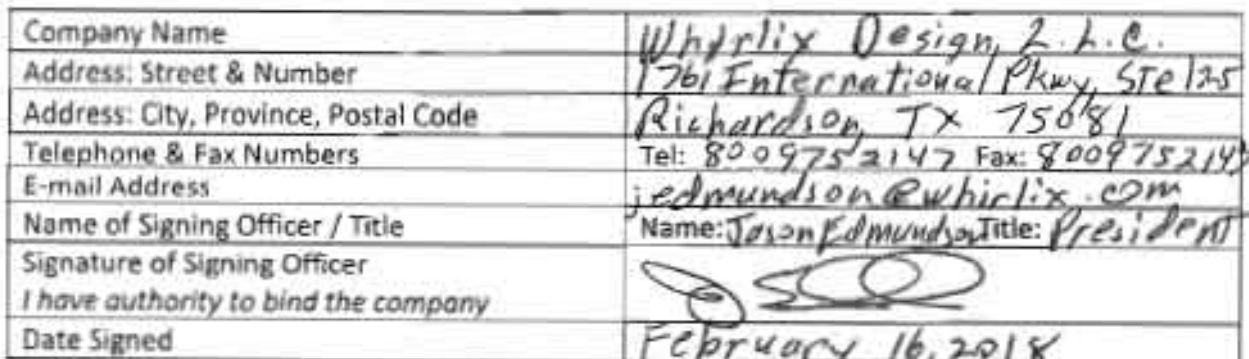 Company Name Whirlix Design, L.L.C.
Address: Street & Number 1761 International Pkwy, STe 125
Address: City, Province, Postal Code Richardson, TX 75081
Telephone & Fax Numbers Tel: 8009752147 Fax: 8009752147
E-mail Address jedmundson@whirlix.com
Name of Signing Officer / Title Name: Jason Edmundson Title: President
Signature of Signing Officer
I have authority to bind the company
Date Signed February 16, 2018